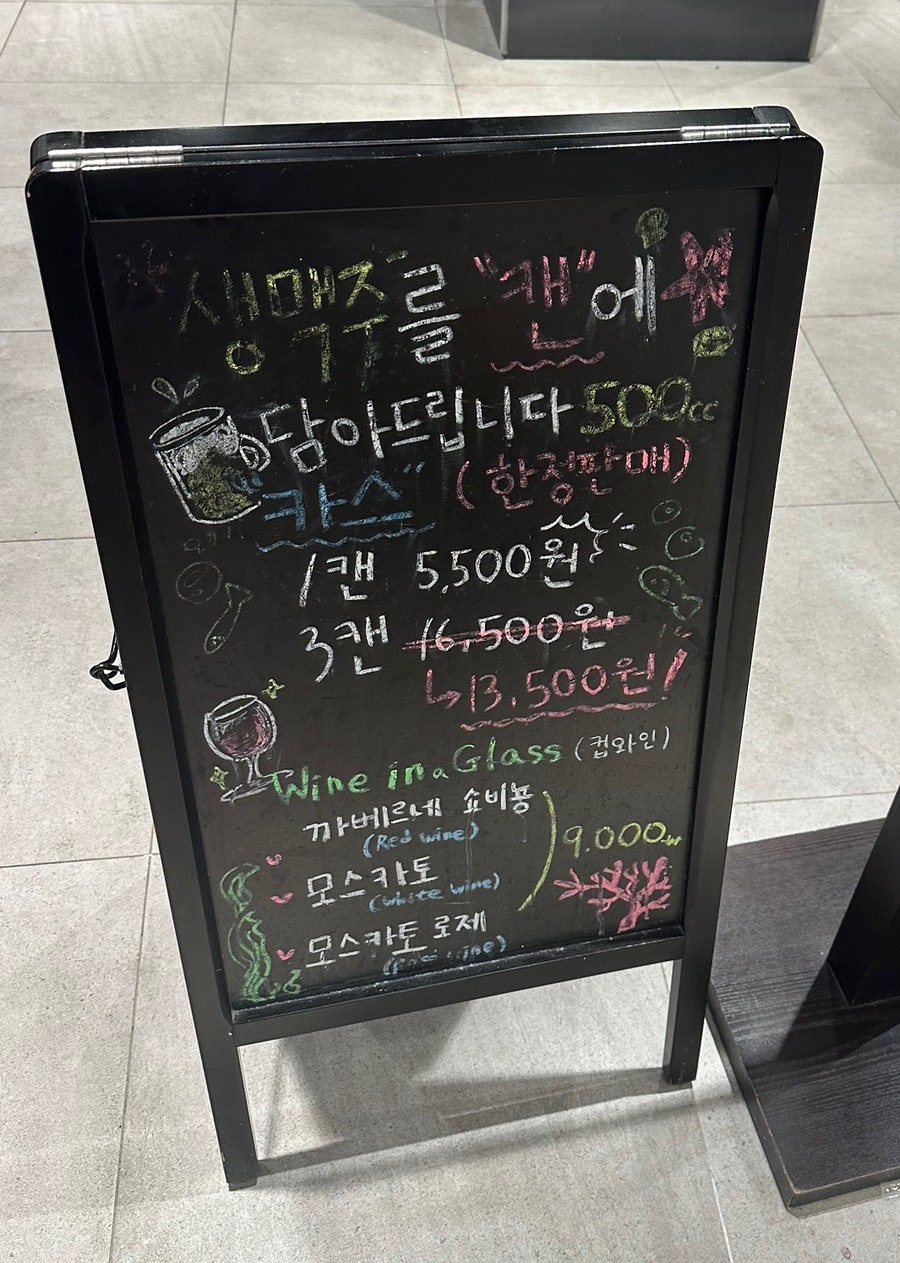 생맥주"를 "캔"에
담아드립니다 500cc
"카스" (한정판매)
1캔 5,500원
3캔 16,500원
↳13,500원!
Wine in a Glass (컵와인)
까베르네 쇼비뇽
(Red wine)
9.000₩
모스카토
(white wine)
모스카토 로제
wine)